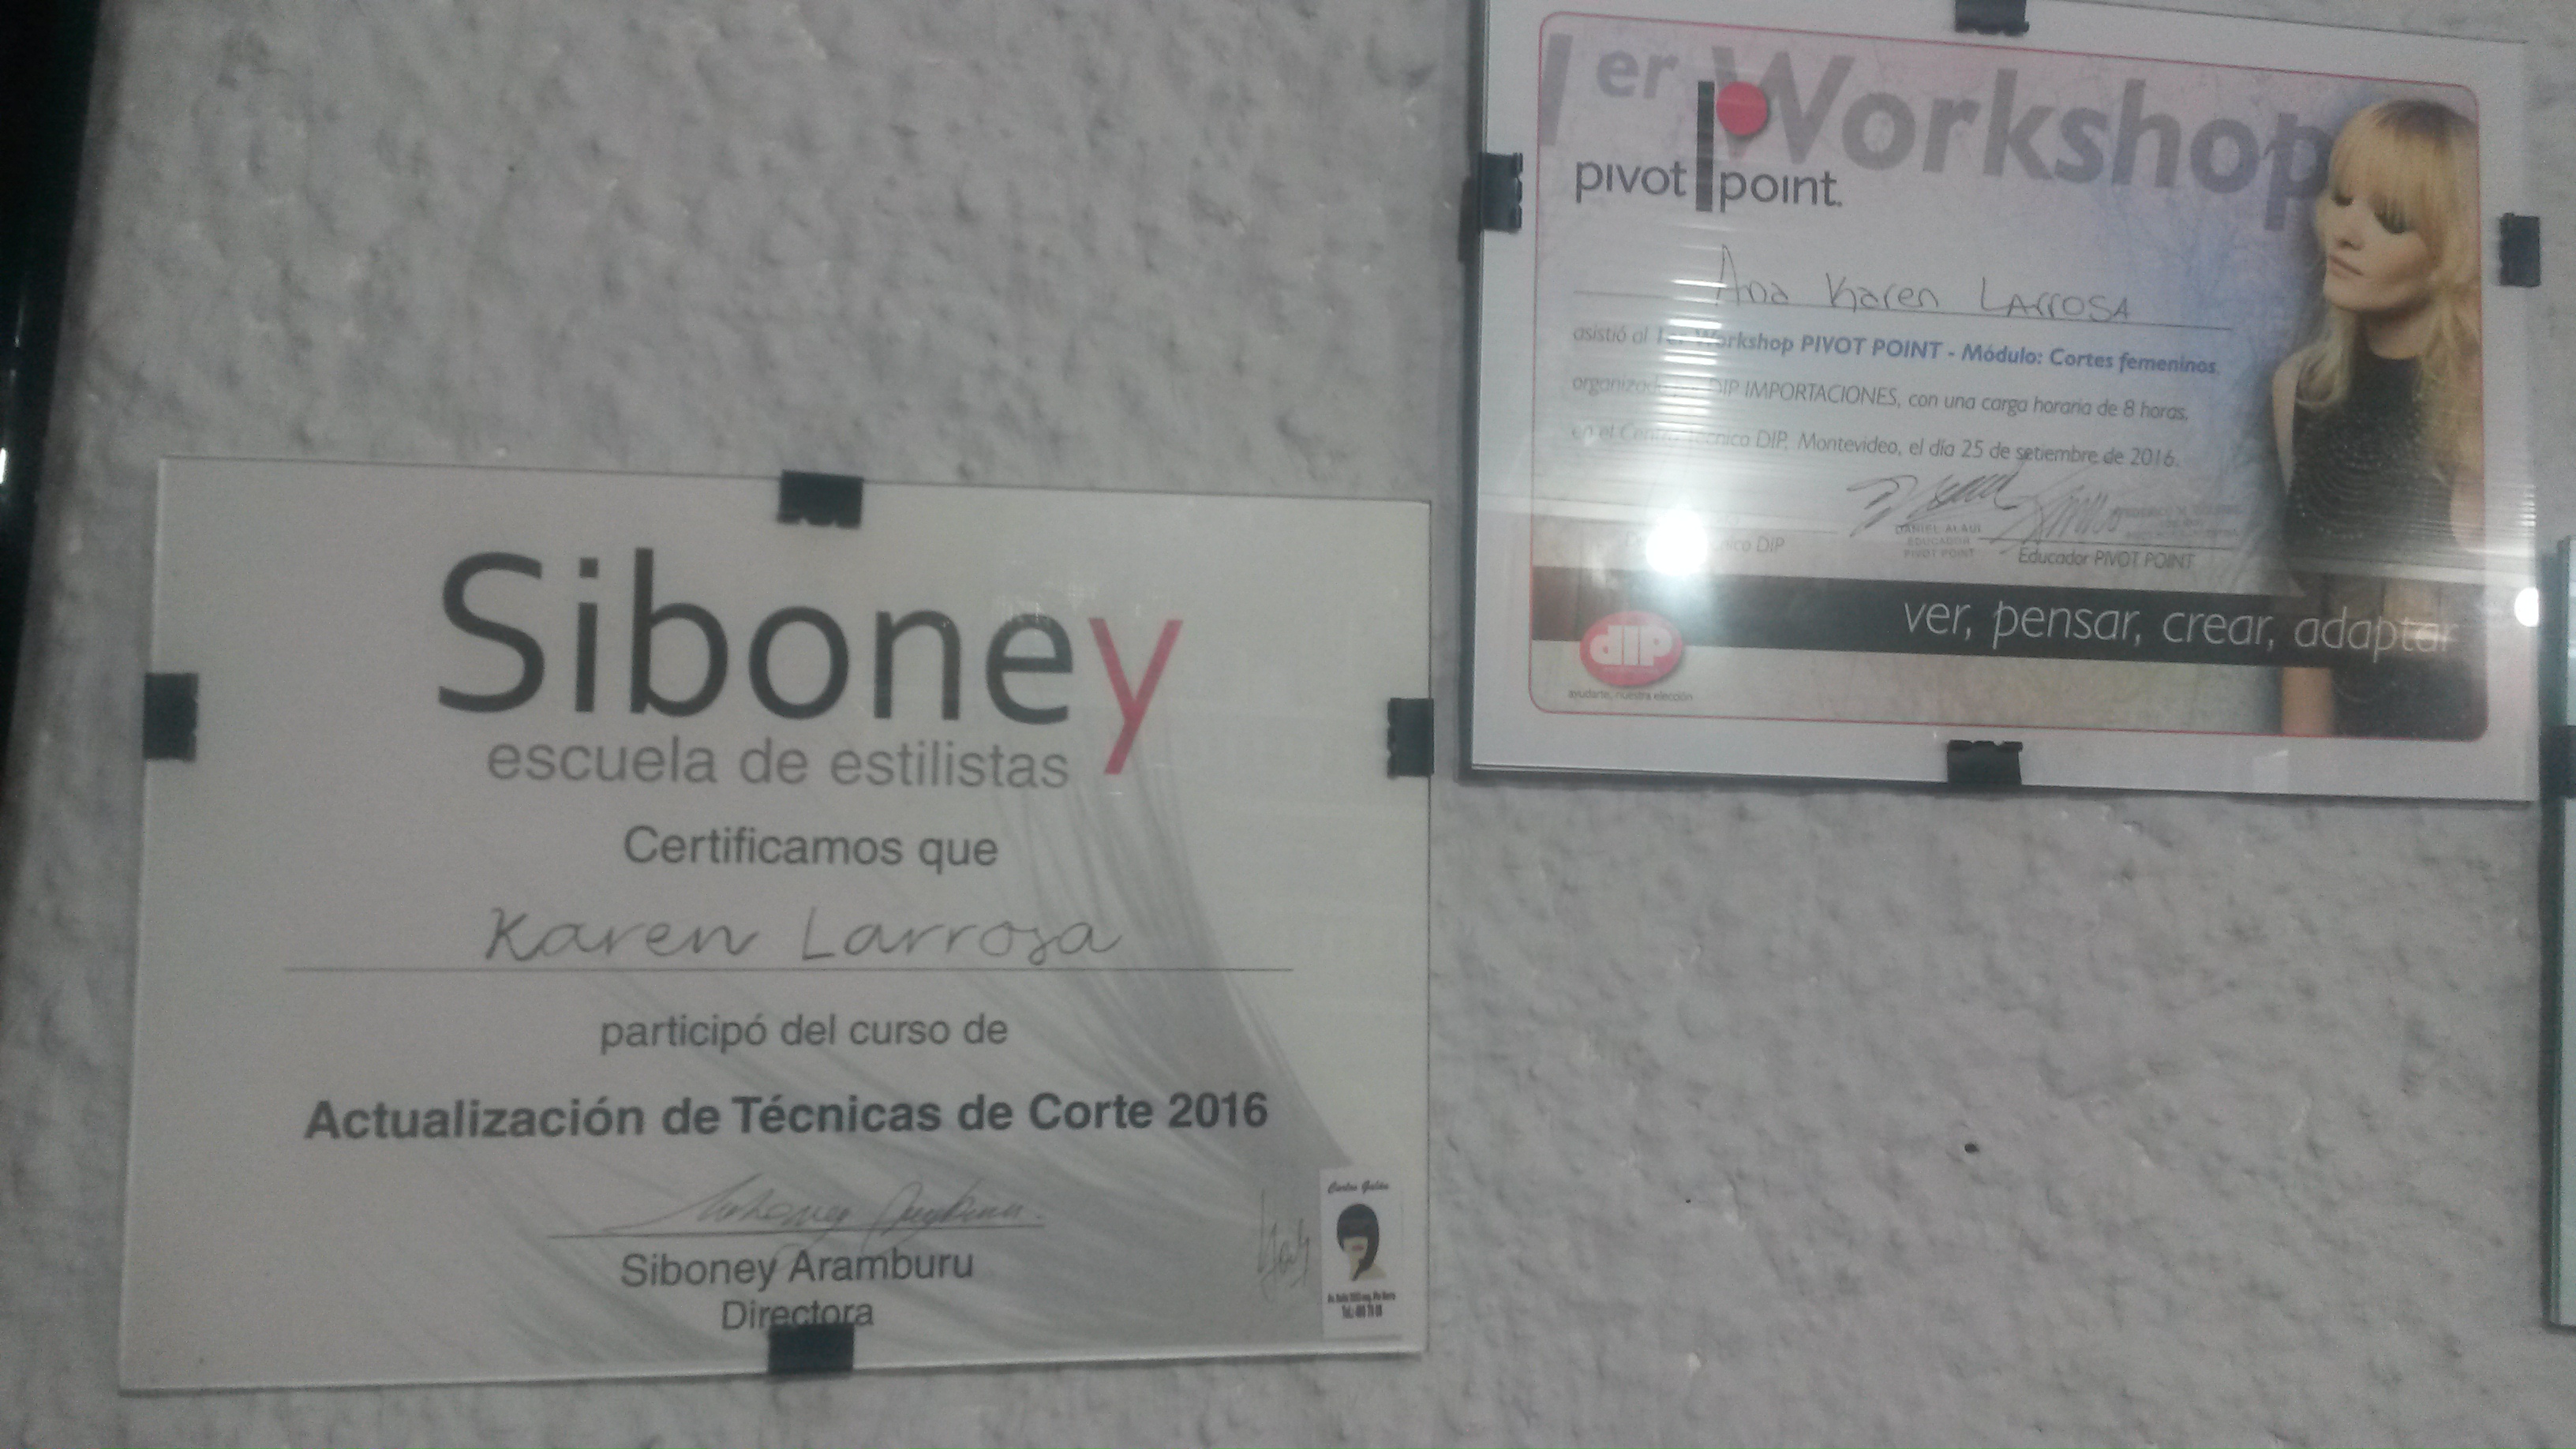 Siboney
escuela de estilistas
Certificamos que
Karen Larrosa
participó del curso de
Actualización de Técnicas de Corte 2016
Siboney Aramburu
Directora
Carlos Galán
1er Workshop
pivot point.
Ana Karen LArrosA
asistió al 1er Workshop PIVOT POINT - Módulo: Cortes femeninos,
organizado DIP IMPORTACIONES, con una carga horaria de 8 horas,
en el Centro Técnico DIP. Montevideo, el día 25 de setiembre de 2016.
DANIEL ALAUI
EDUCADOR
PIVOT POINT
Técnico DIP
Educador PIVOT POINT
ver, pensar, crear, adaptar
dip
ayudarte, nuestra elección